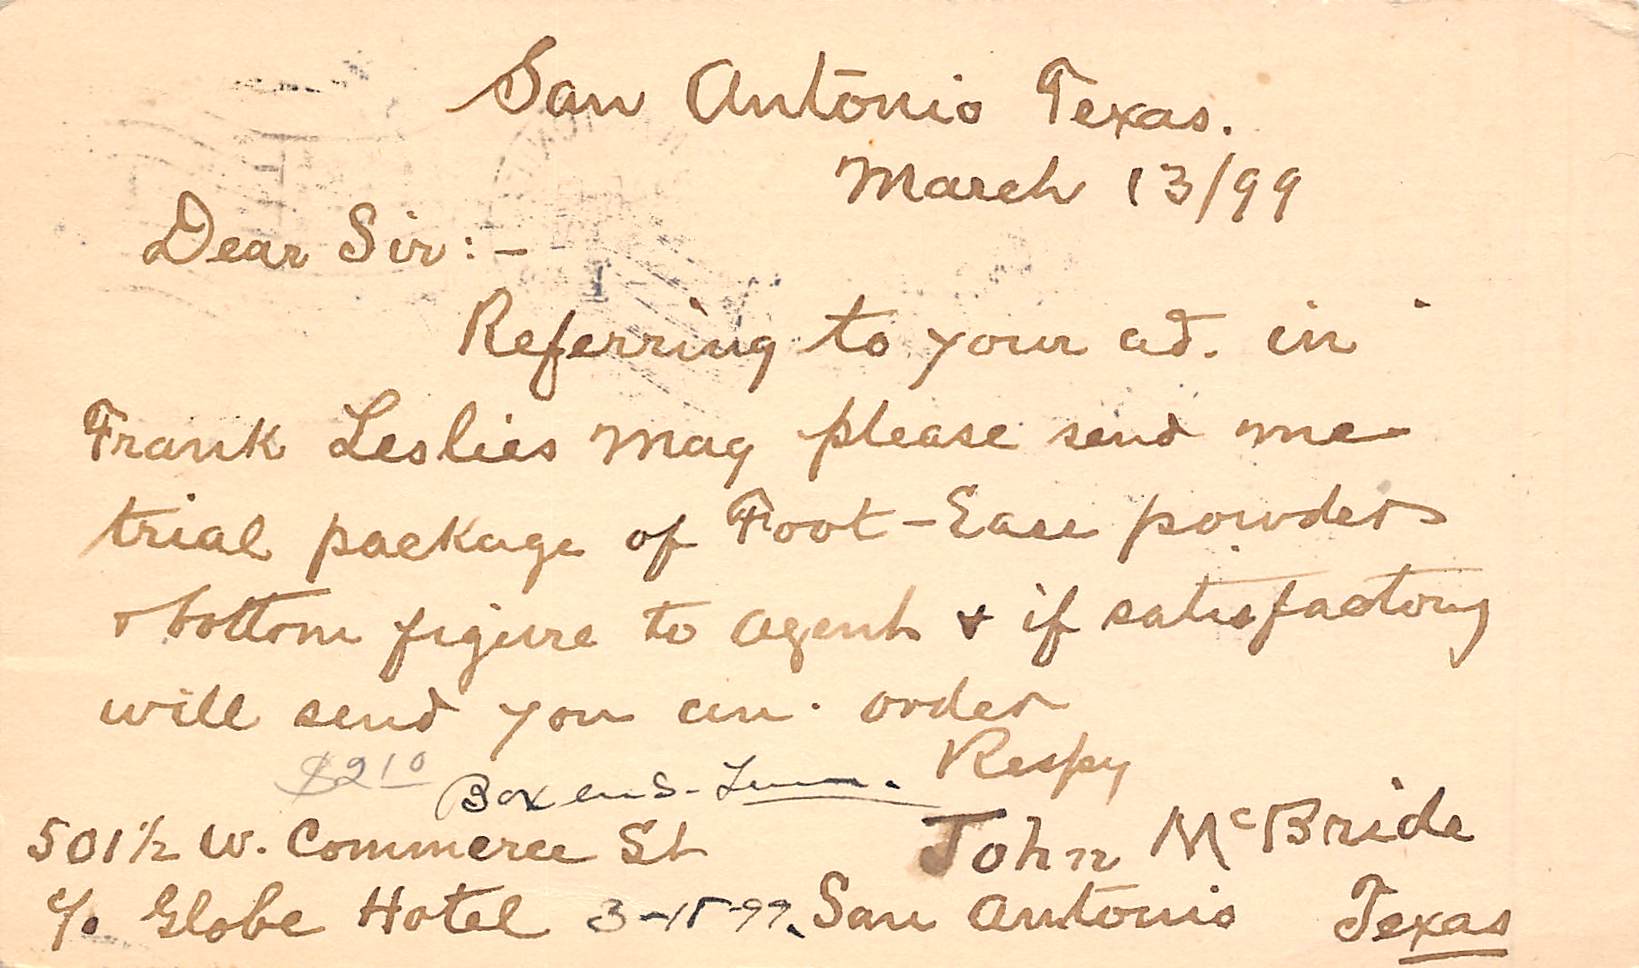 San Antonio Texas.
March 13/99
Dear Sir:-
Referring to your ad. in
Frank Leslies Mag please send me
trial package of Foot-Ease powders
& bottom figure to agent & if satisfactory
will send you an. order
Respy
$2 10
Box
501 1/2 W. Commerce St
John McBride
c/o Globe Hotel 3-15-99. San Antonio Texas